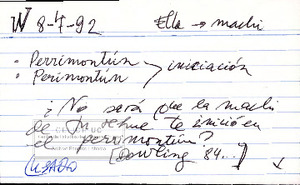 W 8-4-92 Ella → machi
- Perrimontún
- Perimontún > iniciación
¿No será que la machi
de te inició en
el perrimontún?
[Dowling '84...]
USADO